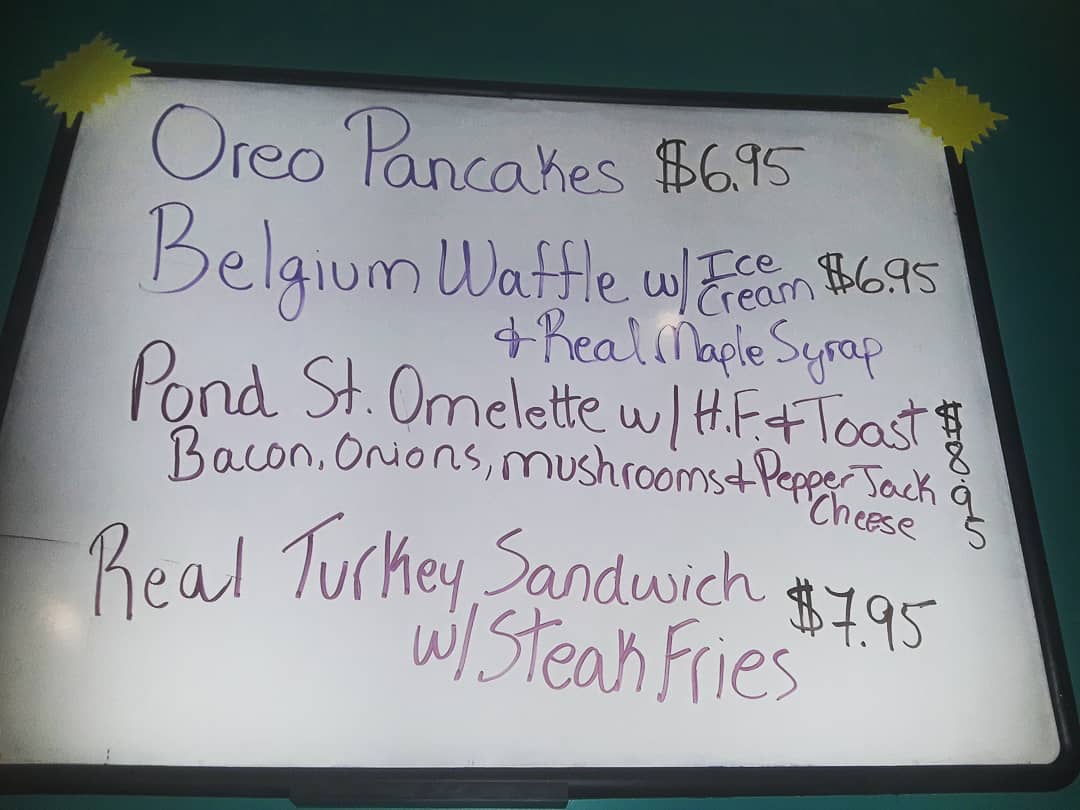 Oreo Pancakes $6.95
Belgium Waffle w/ Ice Cream $6.95
& Real Maple Syrap
Pond St. Omelette w/ H.F. & Toast $8.95
Bacon, Onions, mushrooms & Pepper Jack
Cheese
Real Turkey Sandwich $7.95
w/ Steak Fries